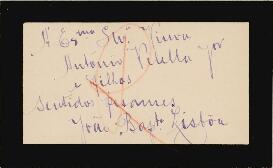 A Exma Sra Viuva
Antonio Vilella
e Filhos
sentidos pesames
João Bapta Lisbôa